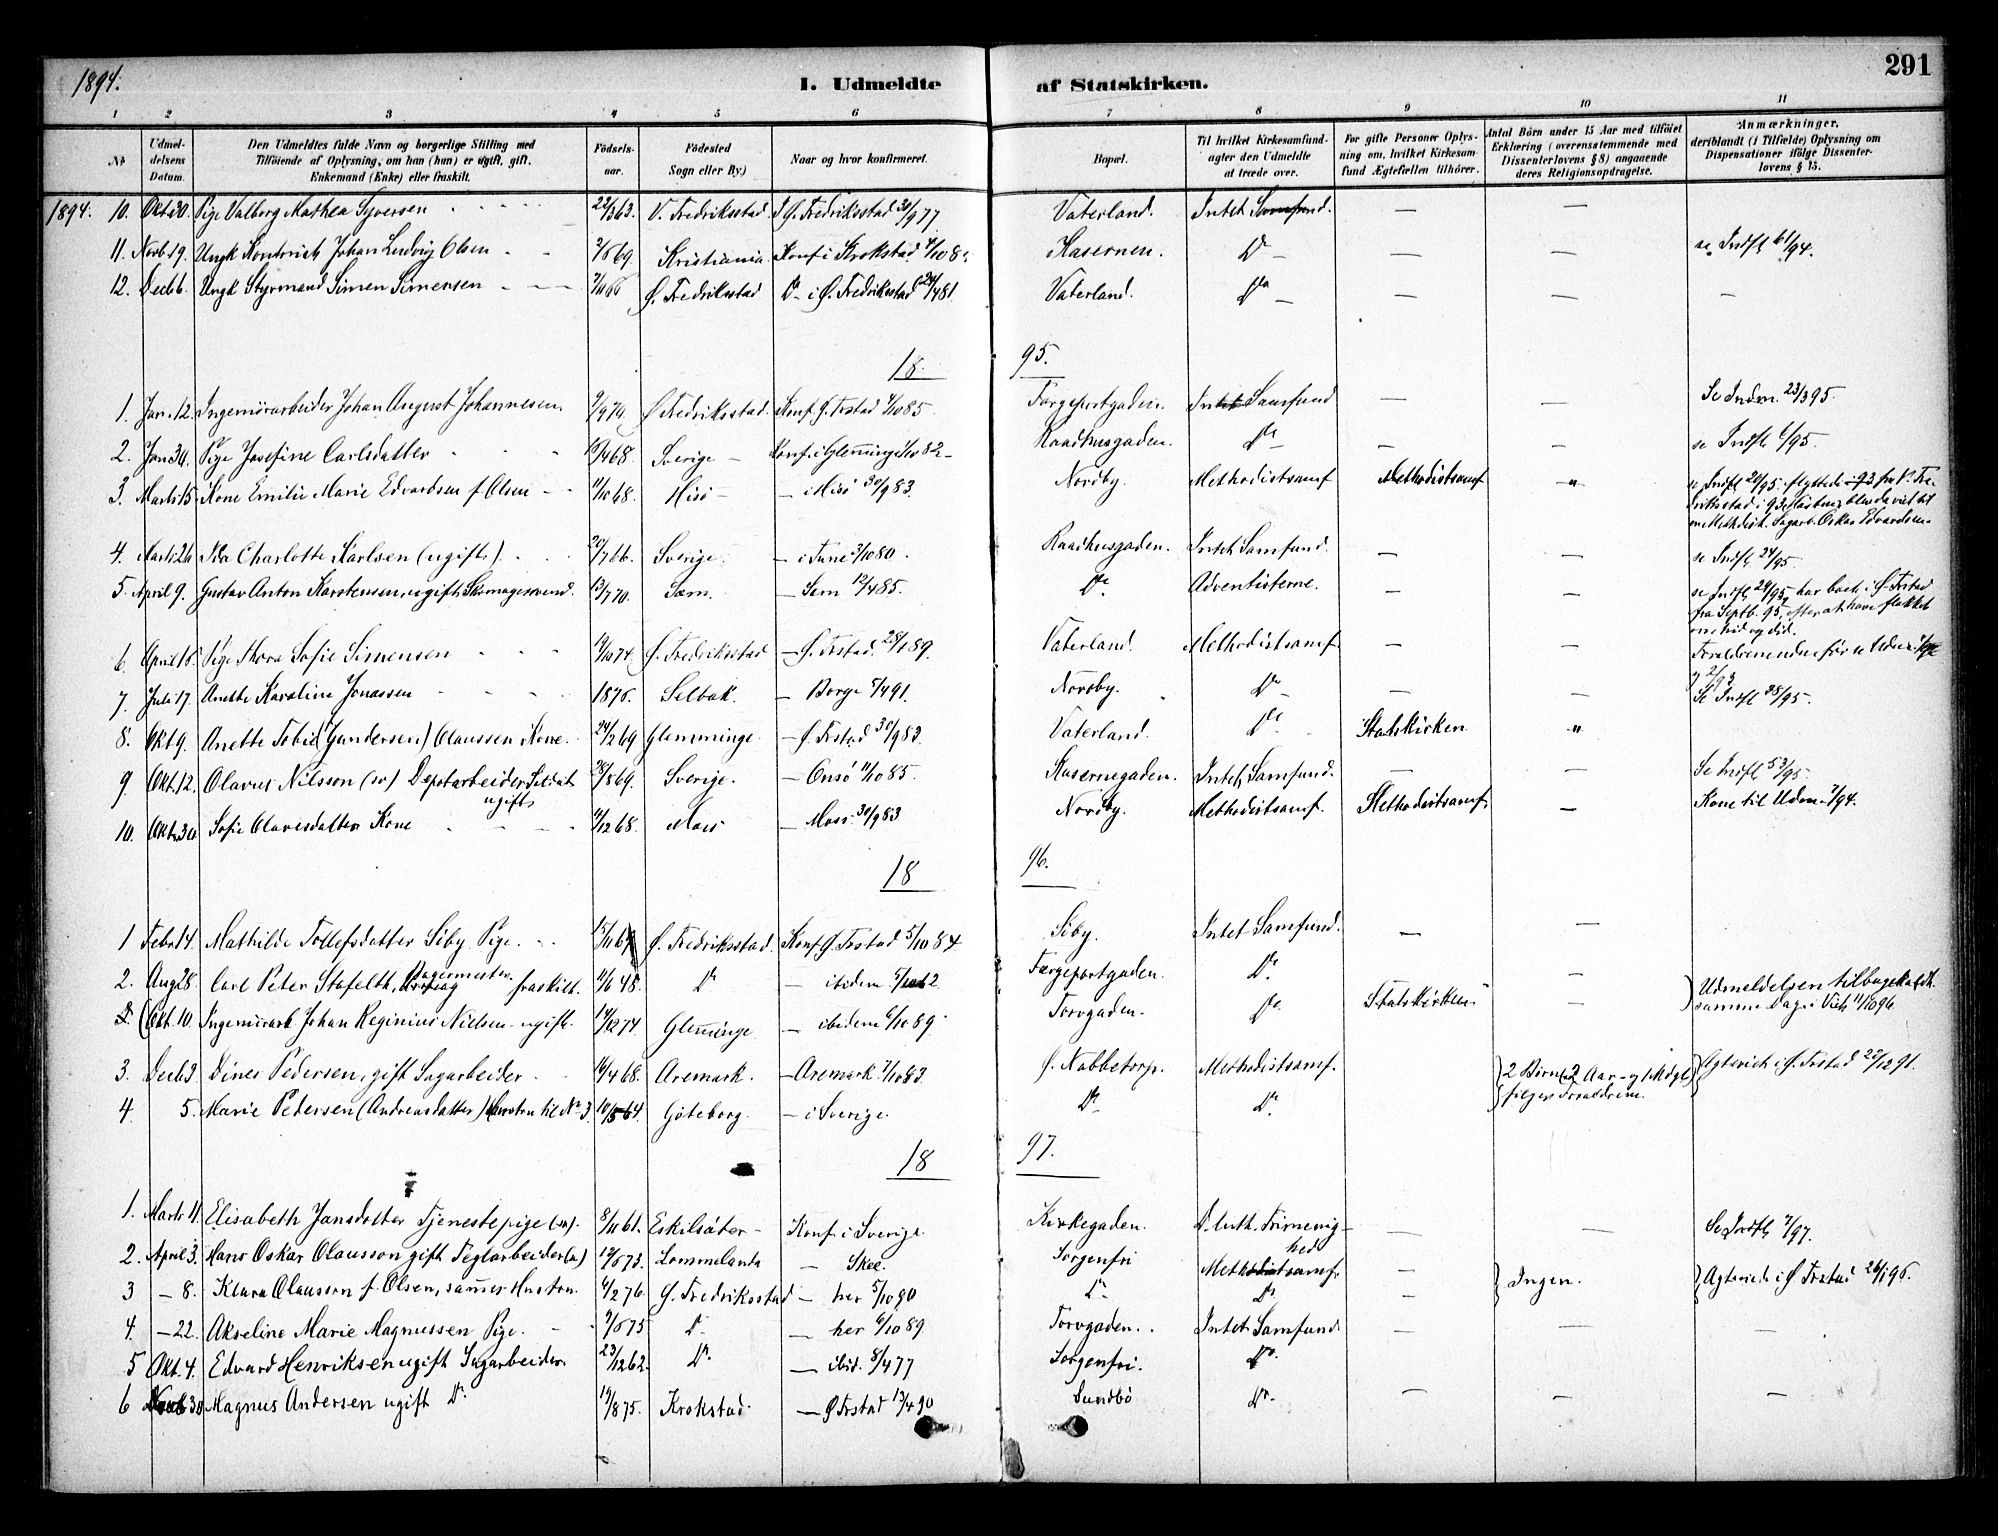 1894.
I. Udmeldte af Statskirken.
291
1 2 3 4 5 6 7 8 9 10 11
No
Udmeldelsens Datum.
Den Udmeldtes fulde Navn og borgerlige Stilling med Tilføiende af Oplysning, om han (hun) er ugift, gift, Enkemand (Enke) eller fraskilt.
Fødselsaar.
Fødested Sogn eller By.)
Naar og hvor konfirmeret.
Bopæl.
Til hvilket Kirkesamfund agter den Udmeldte at træde over.
For gifte Personer Oplysning om, hvilket Kirkesamfund Ægtefællen tilhører.
Antal Børn under 15 Aar med tilføiet Erklæring (overensstemmende med Dissenterlovens § 8) angaaende deres Religionsopdragelse.
Anmærkninger, deriblandt (i Tilfælde) Oplysning om Dispensationer ifølge Dissenterlovens § 15.
1894. 10. Okt 30. Pige Valborg Mathea Syversen 22/3 63. V. Fredriksstad. I Ø. Fredriksstad 30/9 77 Vaterland. Intet Samfund. — —
11. Novb 19. Ungk Kontorist Johan Ludvig Olsen 69. Kristiania. Konf. i Krokstad Kasernen. Do — — — se Indfl 61/94.
12. Decb 6. Ungk Styrmand Simen Simensen 66 Ø. Fredriksstad Do i Ø. Fredriksstad 24/4 81 Vaterland. Do — — — —
18 95.
1. Jan. 12. Ingeniørarbeider Johan August Johannesen. 9/9 70. Ø. Fredriksstad. Konf. Ø. Frstad 4/10 85. Færgeportgaden. Intet Samfund — — Se Indm. 23/3 95.
2. Jan 30. Pige Josefine Carlsdatter 68. Sverige — Konf. i Glemminge 1/10 82 — Raadhusgaden. Do — — se Indfl 6/95.
3. Marts 15. Kone Emilie Marie Edvardsen f. Olsen 11/10 68. Hisö — — i Hisö 30/9 83. Nordby. Methodistsamf Methodistsamf " se Indfl 20/95. flyttede 93 fra V. Fredriksstad i 93 viet til en Methodist. Sagarb. Oskar Edvardsen.
4. Marts 26. Ida Charlotte Karlsen (ugift). 20/7 66. Sverige. — i Tune 3/10 80. Raadhusgaden. Intet Samfund. — — se Indfl 24/95.
5. April 9. Gustav Anton Karstensen, ugift, Skomagersvend. 13/7 70. Sem. — Sem 12/4 85. Do. Adventisterne. — — se Indfl 24/95, har boet i Ø. Frstad fra Septb. 95, efter at have flakket om hid og did.
6. April 16. Pige Thora Sofie Simensen 19/10 74. Ø. Fredriksstad — Ø. Frstad. 28/ 89. Vaterland. Methodistsamf. — — Forældrene udm før se Udm.
7. Juli 17. Anette Karoline Jonassen 1876. Selbak. — Borge 5/4 91. Nordby. Do — — Se Indfl 38/95.
8. Okt 9. Anette Tobie (Gundersen) Claussen Kone. 24/2 69 Glemminge. — Ø. Frstad 30/9 83. Vaterland. Do Statskirken "
9 Okt. 12. Olavus Nilsson (sv) Depotarbeider, Soldat ugift 28/8 69. Sverige. — Onsö 11/10 85. Kasernegaden. Intet Samfund. — — Se Indfl 53/95.
10. Okt. 30. Sofie Olavesdatter Kone 11/12 68. Moss — Moss. 30/9 83 Nordby. Methodistsamf. Methodistsamf. — Kone til Udm. 7/94.
18 96.
1 Febr 14. Mathilde Tollefsdatter Siby Pige. 15/11 67 Ø. Fredriksstad. Konf. Ø. Frstad 5/10 84 Siby. Intet Samfund. — —
2. Aug 28. Carl Peter Stafeldt, Bagermester fraskilt. 11/6 48. Do — ibidem 2 Færgeportgaden. Do. —
Okt. 10. Ingeniörarb Johan Reginius Nielsen ugift. 14/12 74. Glemminge — ibidem 6/10 89. Torvgaden. Do. Statskirken — Udmeldelsen tilbagekaldt samme Dag i Vidn 11/10 96.
3. Decb 3. Dines Pedersen, gift Sagarbeider 16/4 68. Aremark. — Aremark. 7/10 83. Ø. Nabbetorp. Methodistsamf. 2 Börn (2 Aar og 1 Mdgl) følger Forældrene. Ægteviet i Ø. Frstad 22/12 91.
4. 5. Marie Pedersen (Andreasdatter) Hustru til No 3. 10/5 64. Göteborg. — i Sverige. Do Do.
18 97.
1. Marts 11. Elisabeth Jansdotter Tjenestepige (sv). 8/11 61. Eskilsäter — Konf. i Sverige. Kirkegaden. D. luth. Frimenighed — — Se Indfl 7/97.
2. April 3. Hans Oskar Olausson gift Teglarbeider (sv) 73. Lommelanda — Skee. Sorgenfri Methodistsamf. — Ingen. Ægteviede i Ø Frstad 26/1 96.
3 — 8. Klara Olausson f. Olsen, sammes Hustru. 6/2 76. Ø. Fredriksstad — her 5/10 90 Do Do —
4. — 22. Akseline Marie Magnussen Pige. 75 Do — her 6/10 89. Torvgaden. Intet Samfund. — — —
5 Okt. 4. Edvard Henriksen ugift Sagarbeider. 23/12 62. Do. — ibid. 8/4 77 Sorgenfri. Do.
6 Novb 30 Magnus Andersen ugift Do. 19/8 75. Krokstad. — Ø Frstad 13/4 90 Sundbö Do. — — —